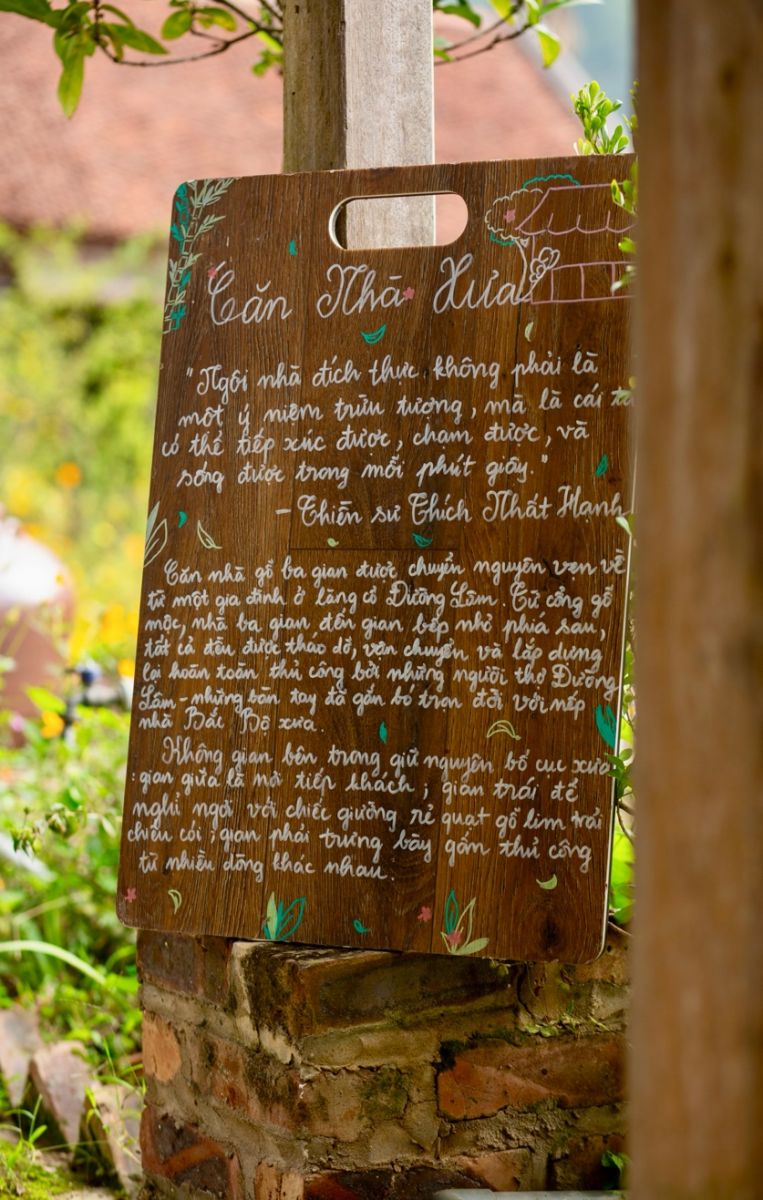 Căn Nhà Xưa
"Ngôi nhà đích thực không phải là
một ý niệm trừu tượng, mà là cái ta
có thể tiếp xúc được, chạm được, và
sống được trong mỗi phút giây."
- Thiền sư Thích Nhất Hạnh
Căn nhà gỗ ba gian được chuyển nguyên vẹn về
từ một gia đình ở làng cổ Đường Lâm. Từ cổng gỗ
mộc, nhà ba gian đến gian bếp nhỏ phía sau,
tất cả đều được tháo dỡ, vận chuyển và lắp dựng
lại hoàn toàn thủ công bởi những người thợ Đường
Lâm - những bàn tay đã gắn bó trọn đời với nếp
nhà Bắc Bộ xưa.
Không gian bên trong giữ nguyên bố cục xưa
: gian giữa là nơi tiếp khách; gian trái để
nghỉ ngơi với chiếc giường rẻ quạt gỗ lim trải
chiếu cói; gian phải trưng bày gốm thủ công
từ nhiều dòng khác nhau.